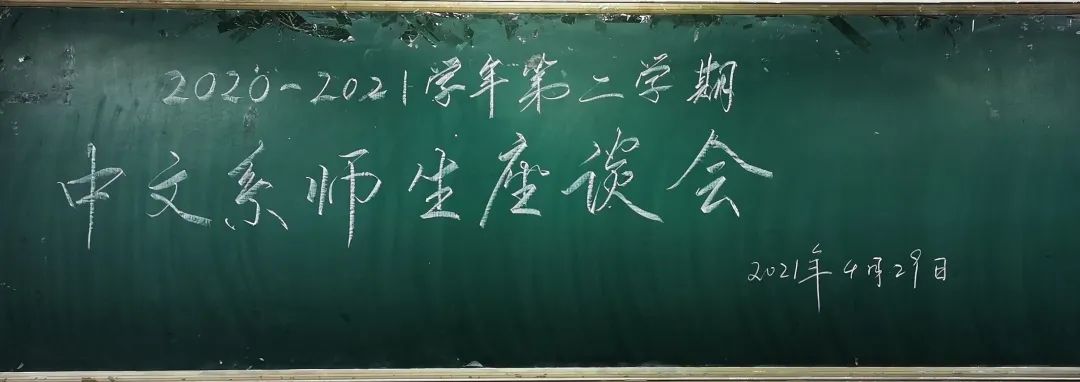 2020-2021学年第二学期
中文系师生座谈会
2021年4月29日